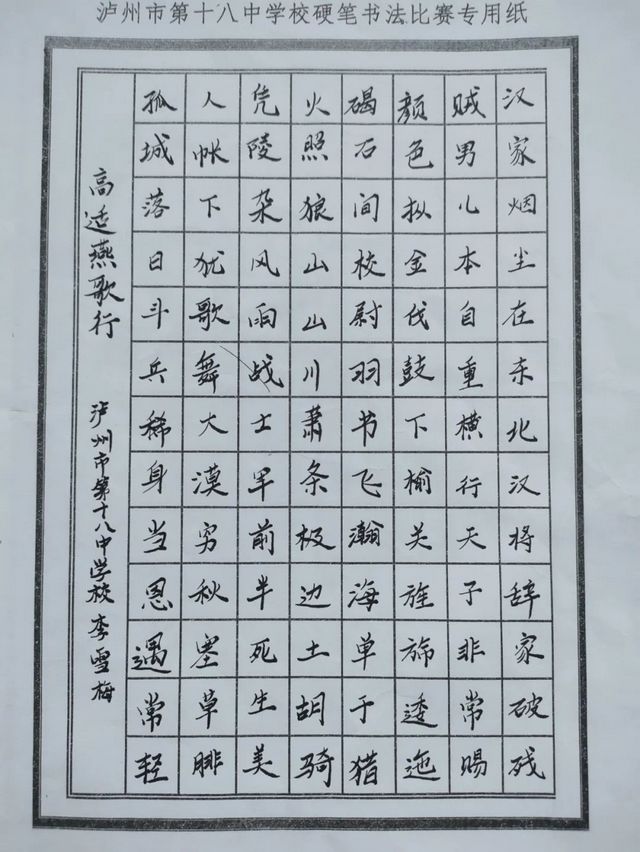 泸州市第十八中学校硬笔书法比赛专用纸
汉家烟尘在东北汉将辞家破残
贼男儿本自重横行天子非常赐
颜色摐金伐鼓下榆关旌旆逶迤
碣石间校尉羽书飞瀚海单于猎
火照狼山山川萧条极边土胡骑
凭陵杂风雨战士军前半死生美
人帐下犹歌舞大漠穷秋塞草腓
孤城落日斗兵稀身当恩遇常轻
高适燕歌行 泸州市第十八中学校李雪梅